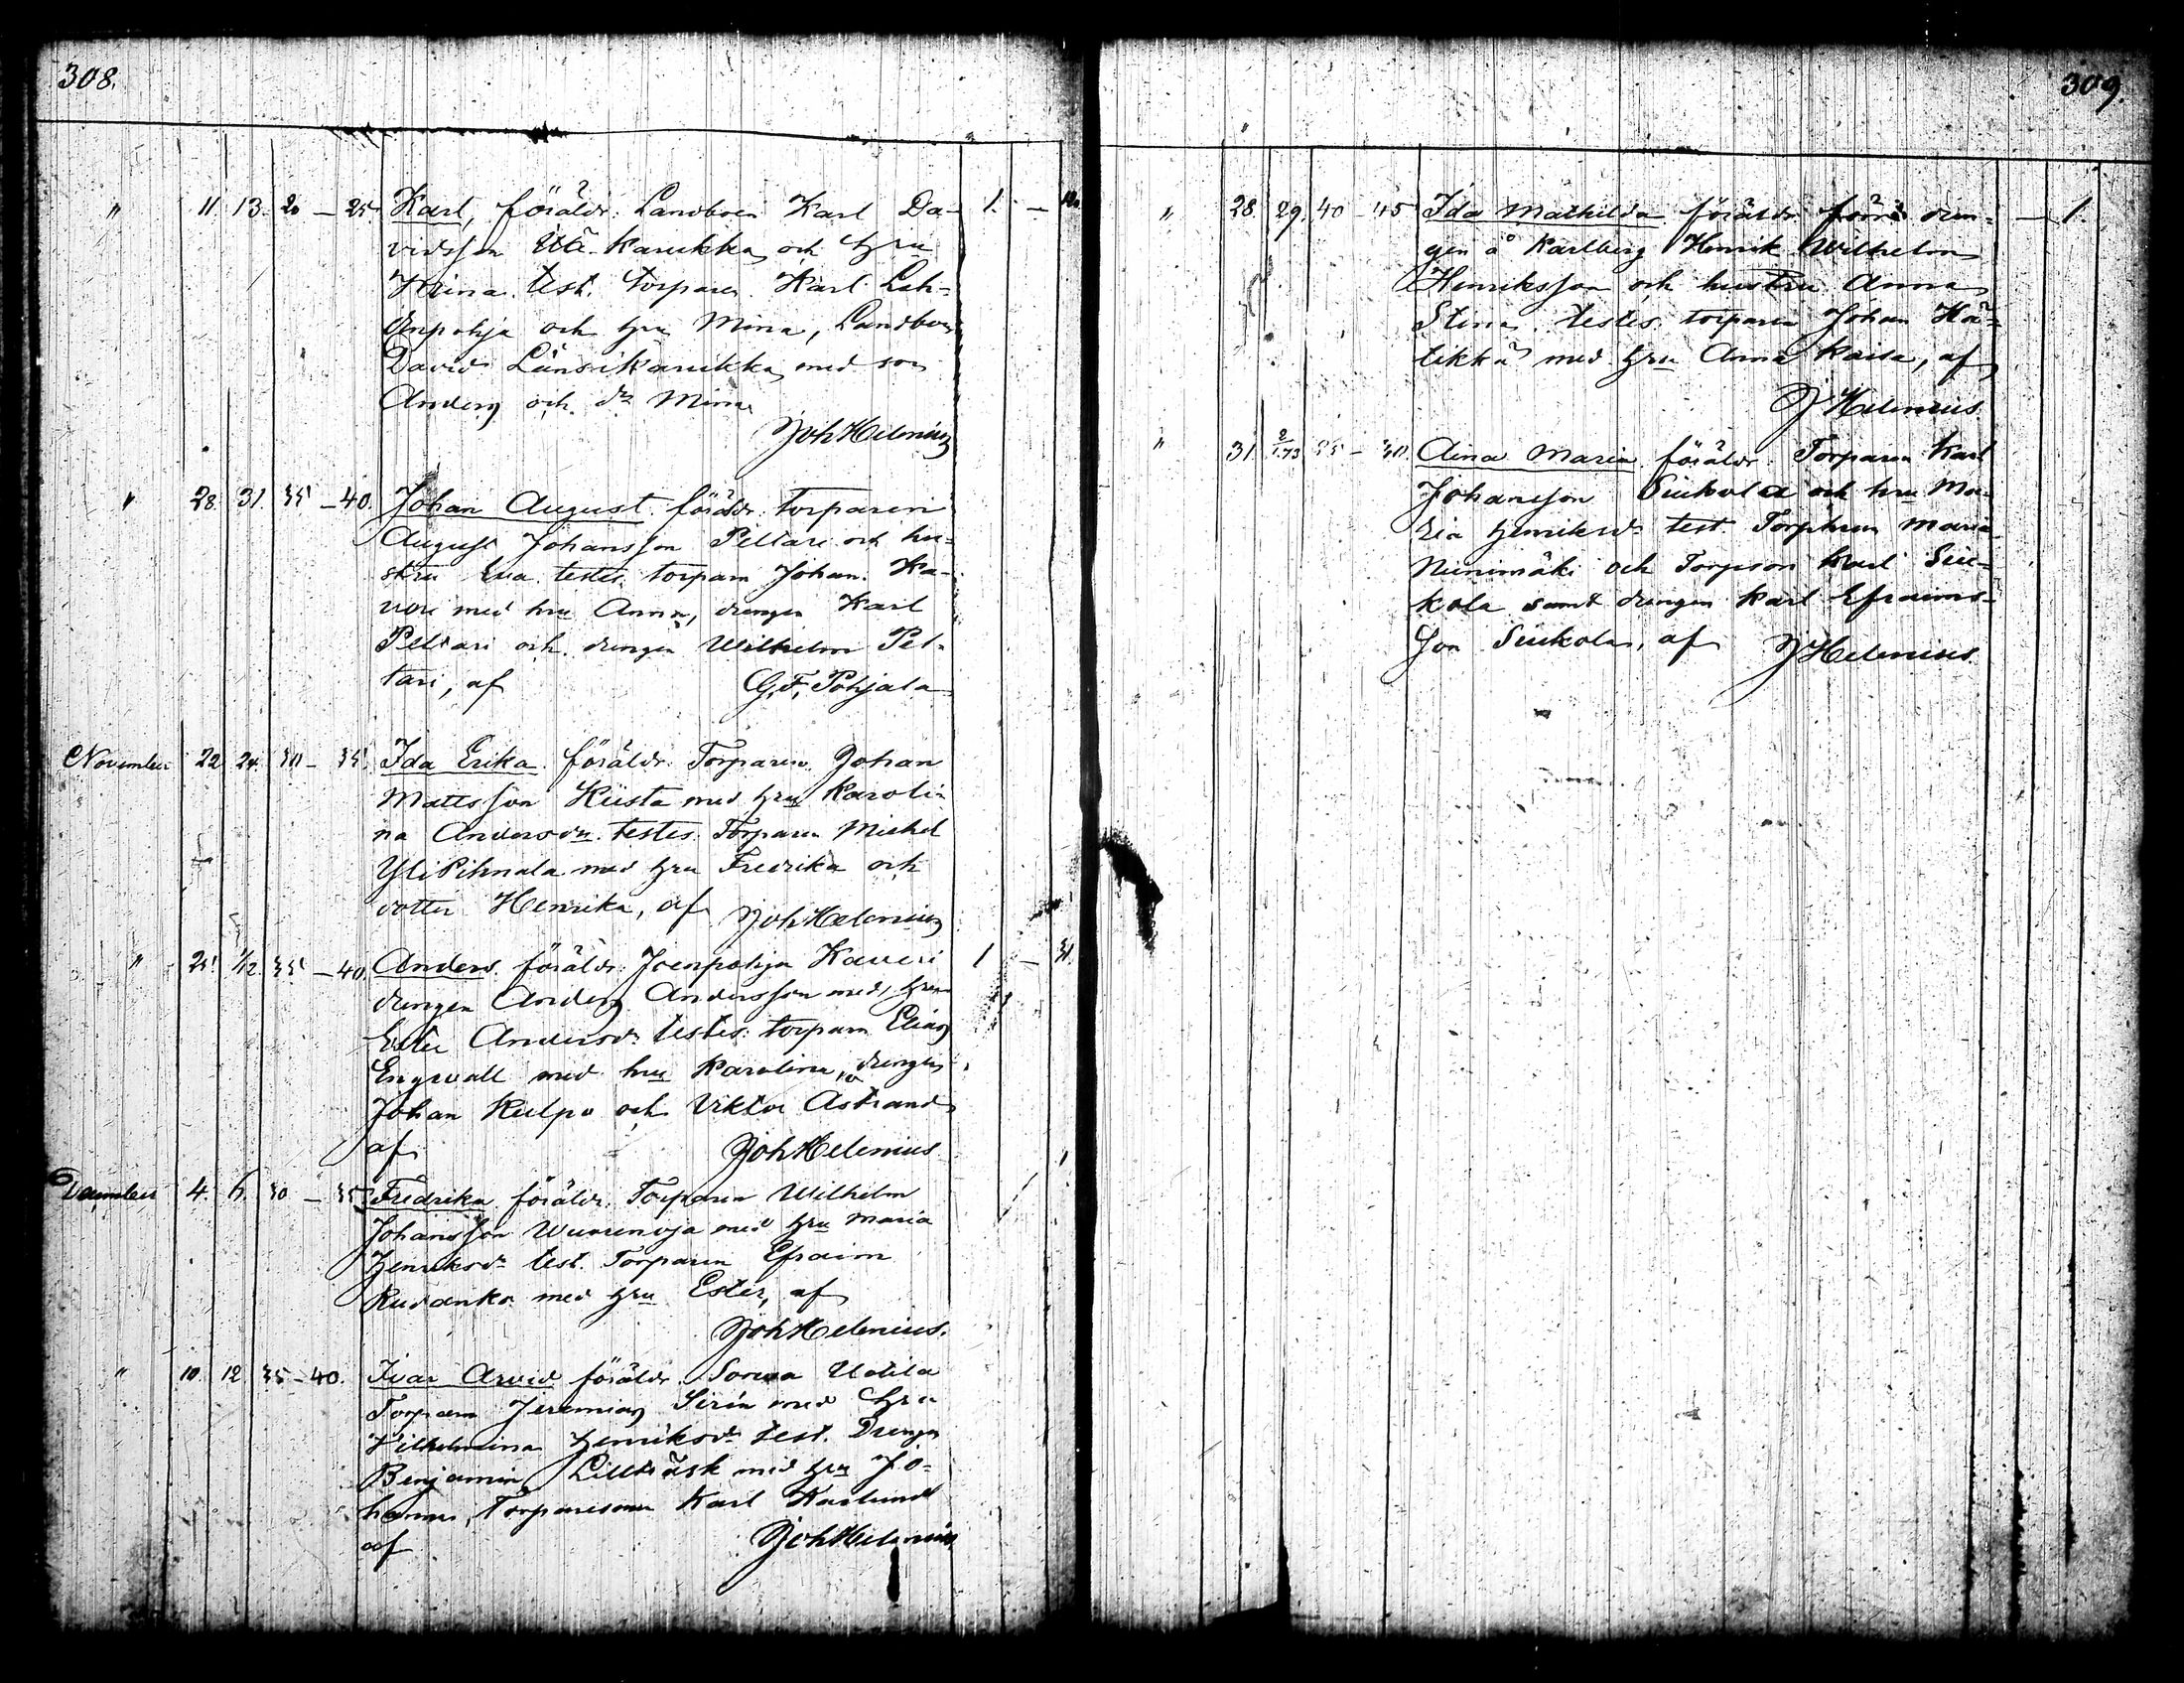 308.
" 11. 13. 20 — 25 Karl, föräldr. Landboen Karl Da- 1. —
vidsson Karukka och hru
test. torparen Karl Lah-
denpohja och hru Mina, Landboen
David Länsikarukka med son
Anders och dr Mina
Joh Helenius
" 28. 31. 35 — 40. Johan August. föräldr. torparen
August Johansson Peltari och hu-
stru Eva. testes. torparen Johan. Ka-
veri med hru Anna, drengen Karl
Peltari och drengen Wilhelm Pel-
tari, af G. F. Pohjala
November 22 24. 30 — 35. Ida Erika. föräldr. Torparen Johan
Mattsson Kiista med hru Karoli-
na Andersdr. testes. Torparen Michel
Yli Pihnala med hru Fredrika och
dotter Henrika, af Joh Helenius
" 25. 1/12. 35 — 40. Anders. föräldr: Joenpohja Kaveri 1 — 31.
drengen Anders Andersson med hru
Ester Andersdr. testes: torparen Elias
Engwall med hru Karolina, drengen
Johan Kulpo och Viktor Åstrand
af Joh Helenius
December 4. 6. 30 — 35 Fredrika. föräldr. Torparen Wilhelm
Johansson Wuorenoja med hru Maria
Henriksdr test. Torparen Efraim
Rudanko med hru Ester, af
Joh Helenius.
" 10. 12. 35 — 40. Ivar Arvid föräldr. Uotila
Torparen Jeremias Sirén med hru
Vilhelmina Henriksdr test. Drengen
Benjamin Lillträsk med hru Jo-
hanna, Torparesonen Karl
af Joh Helenius
309.
" 28. 29. 40 — 45 Ida Mathilda föräldr. förre dren- — 1.
gen å Karlberg Henrik Wilhelm
Henriksson och hustru Anna
Stina. testes. torparen Johan Hä-
tikkä med hru Anna Kaisa, af
J Helenius.
" 31 2/1.73 35 — 40. Aina Maria. föräldr. Torparen Karl
Johansson Siukola och hru Ma-
ria Henriksdr. test. Torphrun Maria
Nienimäki och Torpson Karl Siu-
kola samt drengen Karl Efraims-
son Siukola, af J Helenius.